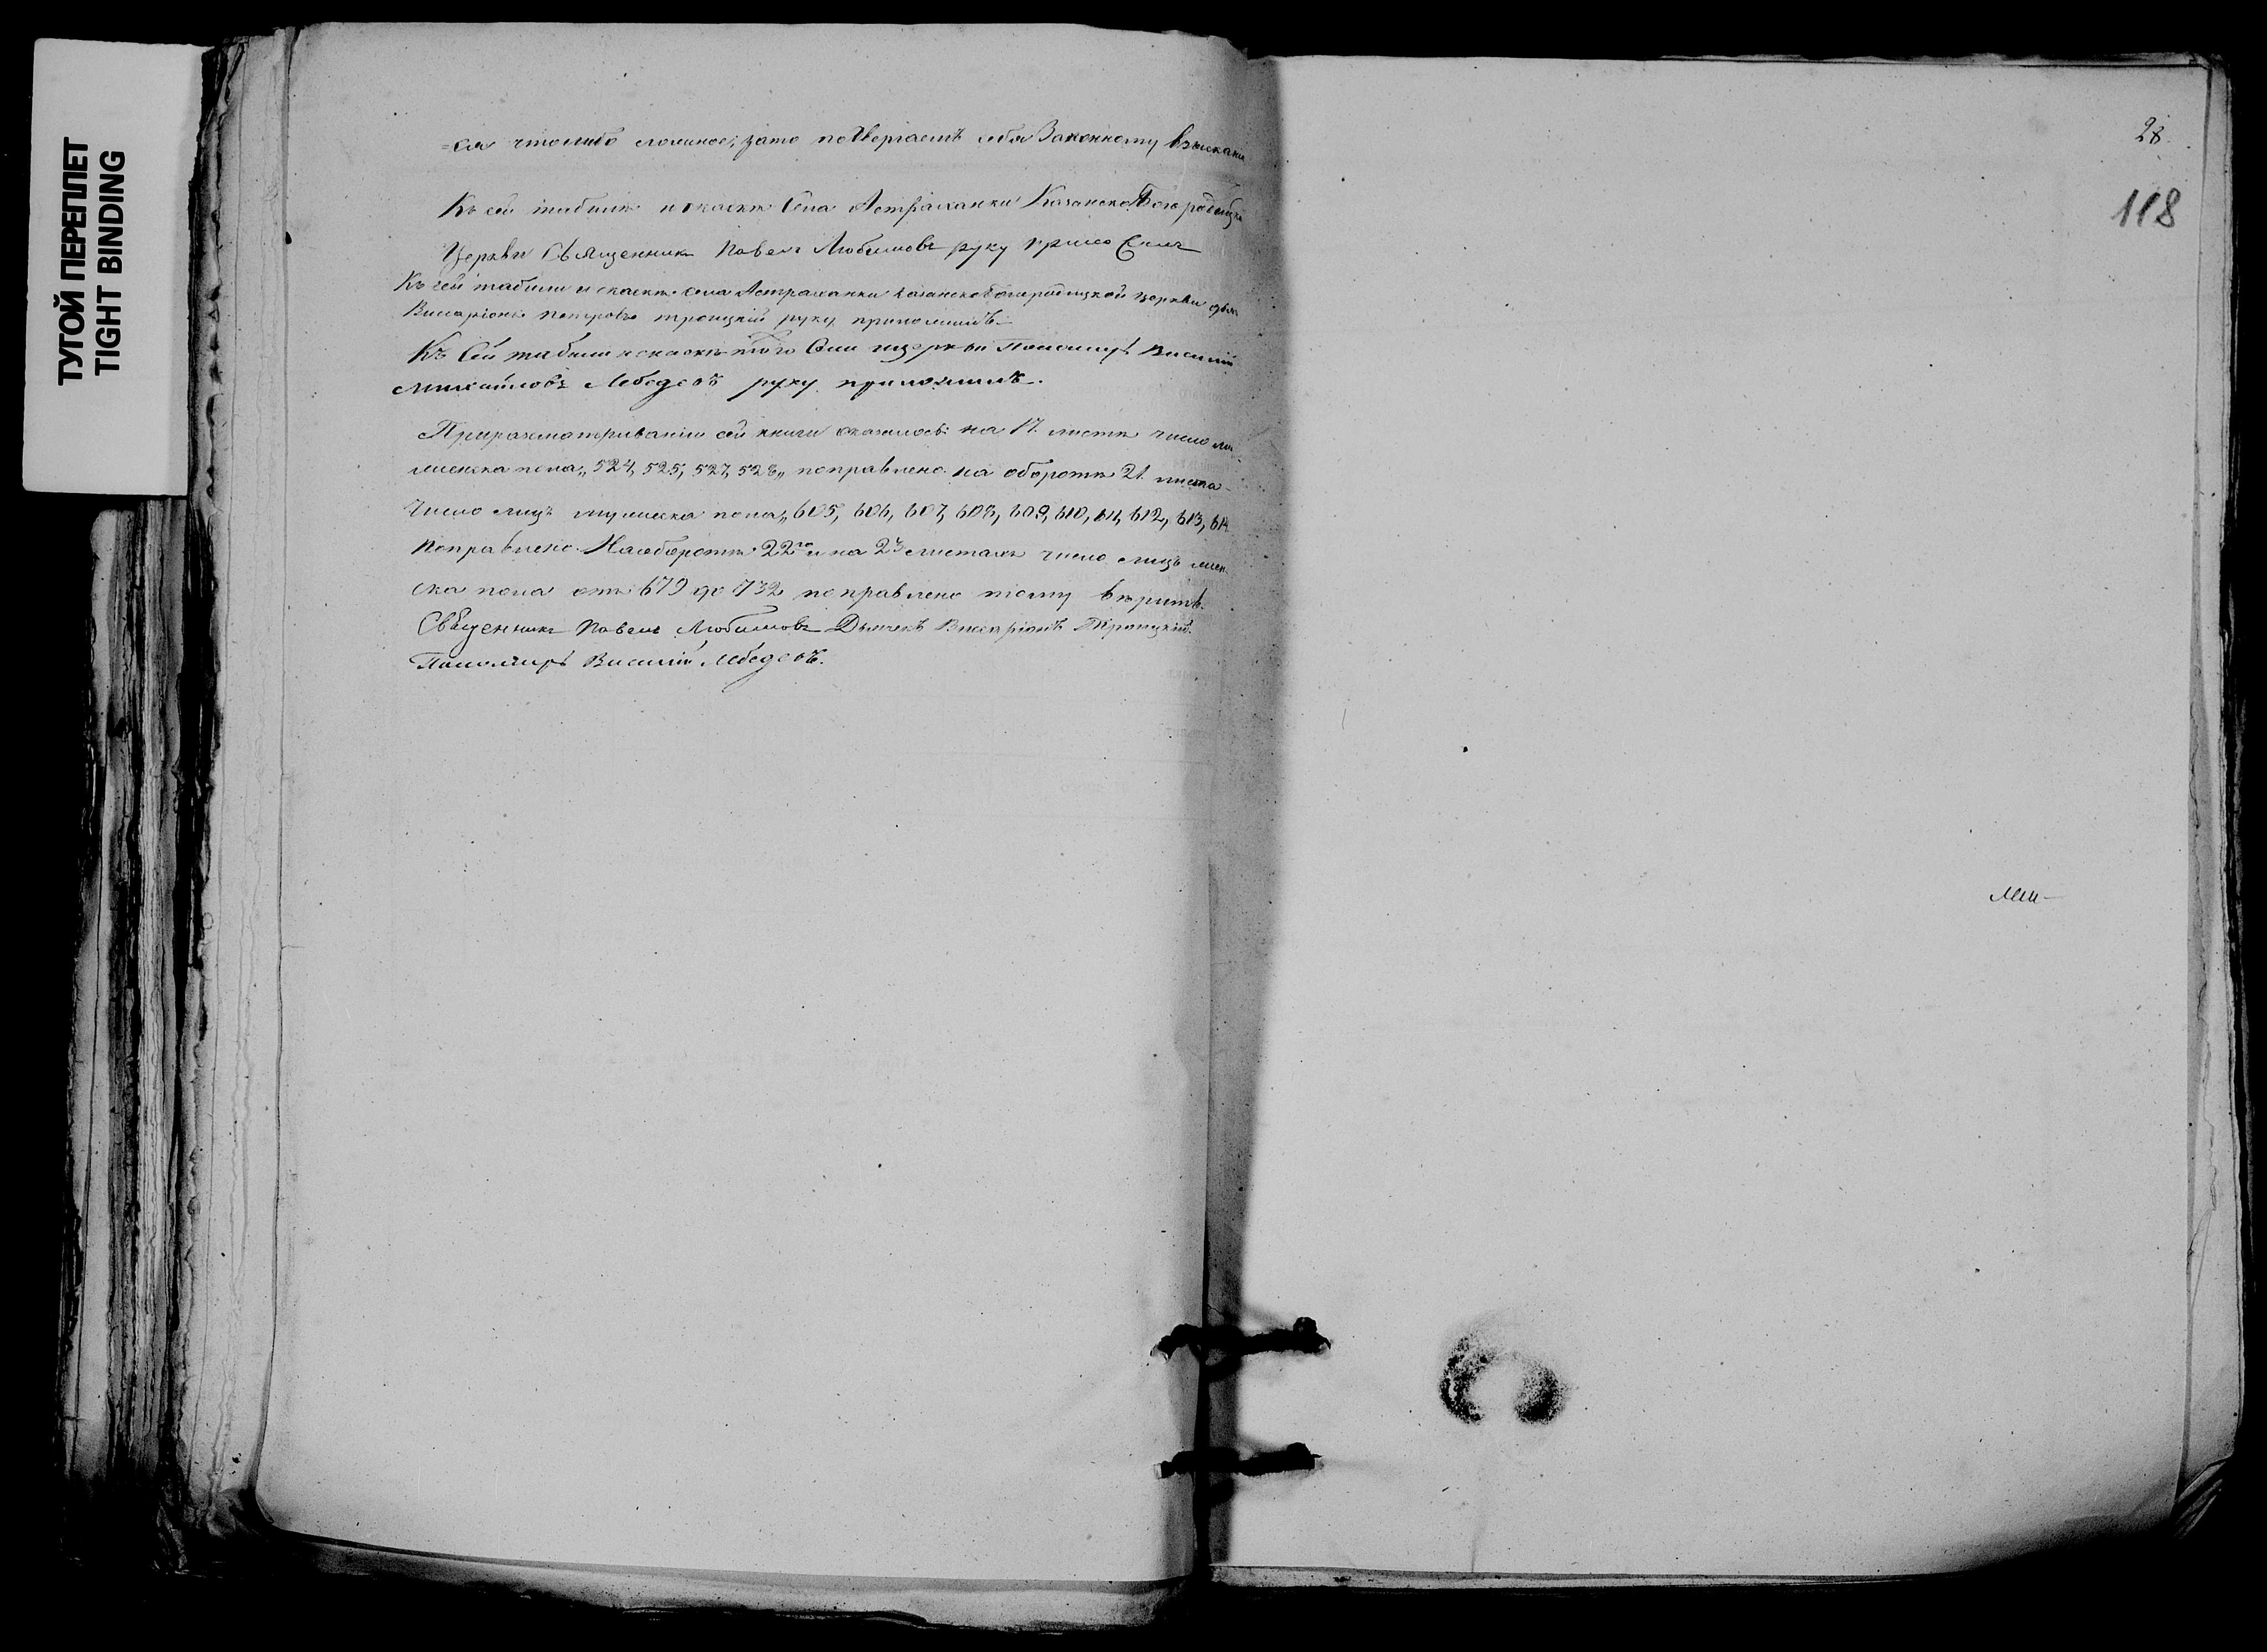 ТУГОЙ ПЕРЕПЛЕТ
TIGHT BINDING
=ся что либо ложное, зато подвергаемъ себя Законному взыскани
Къ сей табели и скаскѣ Села Астраханки КазанскоБогородицкой
Церкви Священникъ Павелъ Любимовъ руку приложилъ
Къ сей табели и скаскѣ села Астраханки КазанскоБогородицкой церкви
Висаріонъ Петровъ Троицкій руку приложилъ
Къ Сей табели и скаскѣ того Села церкви Пономарь Василій
Михайловъ Лебедевъ руку приложилъ.
Приразсматриваніи сей книги оказалось: на 17. листѣ число
женска пола „524, 525, 527, 528„ поправлено на оборотѣ 21. листа
Число лицъ мужеска пола „605, 606, 607, 608, 609, 610, 611, 612, 613, 614
поправлено. Наоборотѣ 22го и на 23 листахъ число лицъ жен
ска пола отъ 679 до 732 поправлено тому вѣрить.
Священникъ Павелъ Любимовъ Дьячекъ Висаріонъ Троицкій.
Пономарь Василій Лебедевъ.
28
118